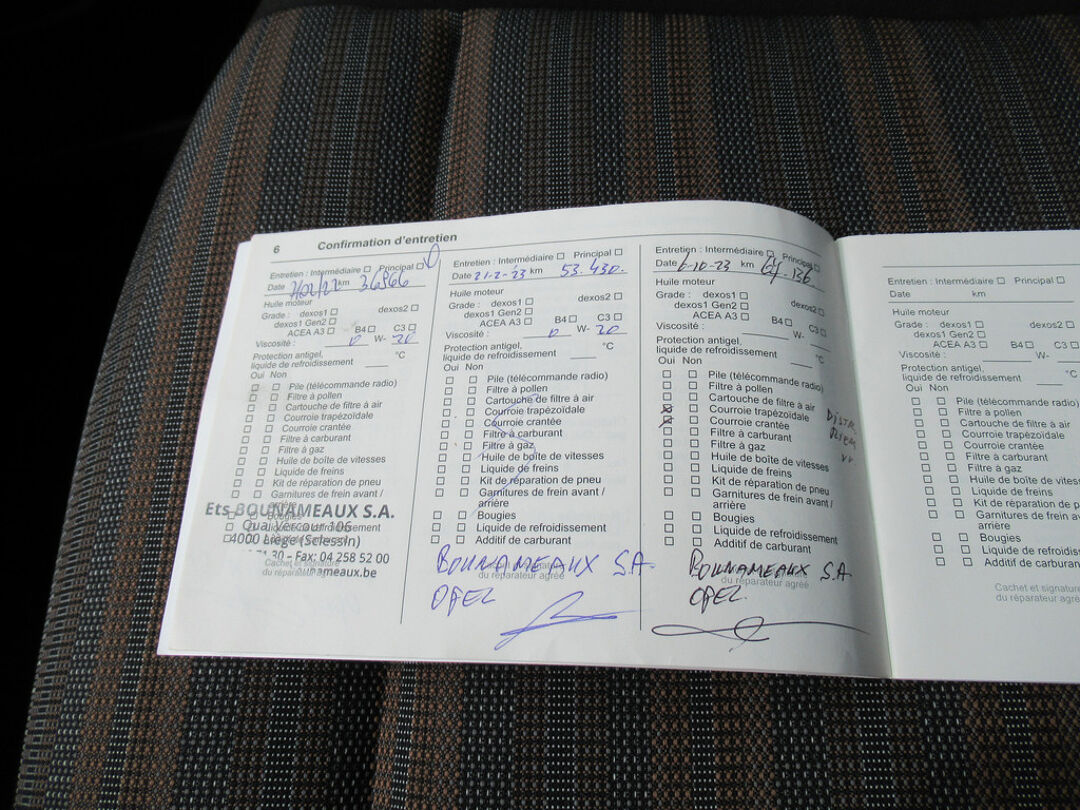 6 Confirmation d'entretien
Entretien : Intermédiaire □ Principal □
Date km 36966
Huile moteur
Grade : dexos1 □ dexos2 □
dexos1 Gen2 □
ACEA A3 □ B4 □ C3 □
Viscosité : 0 W- 20
Protection antigel,
liquide de refroidissement ____ °C
Oui Non
□ □ Pile (télécommande radio)
□ □ Filtre à pollen
□ □ Cartouche de filtre à air
□ □ Courroie trapézoïdale
□ □ Courroie crantée
□ □ Filtre à carburant
□ □ Filtre à gaz
□ □ Huile de boîte de vitesses
□ □ Liquide de freins
□ □ Kit de réparation de pneu
□ □ Garnitures de frein avant /
arrière
Ets BOUNAMEAUX S.A.
□ □ Bougies
Quai Vercour 106
□ □ Liquide de refroidissement
4000 Liège (Sclessin)
30 – Fax: 04 258 52 00
Cachet et signature
unameaux.be
du réparateur agréé
Entretien : Intermédiaire □ Principal □
Date 21-2-23 km 53.430.
Huile moteur
Grade : dexos1 □ dexos2 □
dexos1 Gen2 □
ACEA A3 □ B4 □ C3 □
Viscosité : 0 W- 20
Protection antigel,
liquide de refroidissement ____ °C
Oui Non
□ □ Pile (télécommande radio)
□ □ Filtre à pollen
□ □ Cartouche de filtre à air
□ □ Courroie trapézoïdale
□ □ Courroie crantée
□ □ Filtre à carburant
□ □ Filtre à gaz
□ □ Huile de boîte de vitesses
□ □ Liquide de freins
□ □ Kit de réparation de pneu
□ □ Garnitures de frein avant /
arrière
□ □ Bougies
□ □ Liquide de refroidissement
□ □ Additif de carburant
BOUNAMEAUX S.A
Cachet et signature
du réparateur agréé
OPEL
Entretien : Intermédiaire □ Principal □
Date 6-10-23 km 64.136
Huile moteur
Grade : dexos1 □ dexos2 □
dexos1 Gen2 □
ACEA A3 □ B4 □ C3 □
Viscosité : ____ W- ____
Protection antigel,
liquide de refroidissement ____ °C
Oui Non
□ □ Pile (télécommande radio)
□ □ Filtre à pollen
□ □ Cartouche de filtre à air
□ □ Courroie trapézoïdale
□ □ Courroie crantée
□ □ Filtre à carburant
□ □ Filtre à gaz
□ □ Huile de boîte de vitesses
□ □ Liquide de freins
□ □ Kit de réparation de pneu
□ □ Garnitures de frein avant /
arrière
□ □ Bougies
□ □ Liquide de refroidissement
□ □ Additif de carburant
BOUNAMEAUX S.A
du réparateur agréé
OPEL
Entretien : Intermédiaire □ Principal □
Date km
Huile moteur
Grade : dexos1 □ dexos2 □
dexos1 Gen2 □
ACEA A3 □ B4 □ C3 □
Viscosité : ____ W- ____
Protection antigel,
liquide de refroidissement ____ °C
Oui Non
□ □ Pile (télécommande radio)
□ □ Filtre à pollen
□ □ Cartouche de filtre à air
□ □ Courroie trapézoïdale
□ □ Courroie crantée
□ □ Filtre à carburant
□ □ Filtre à gaz
□ □ Huile de boîte de vitesses
□ □ Liquide de freins
□ □ Kit de réparation de p
□ □ Garnitures de frein avan
arrière
□ □ Bougies
□ □ Liquide de refroidiss
□ □ Additif de carburan
Cachet et signature
du réparateur agréé